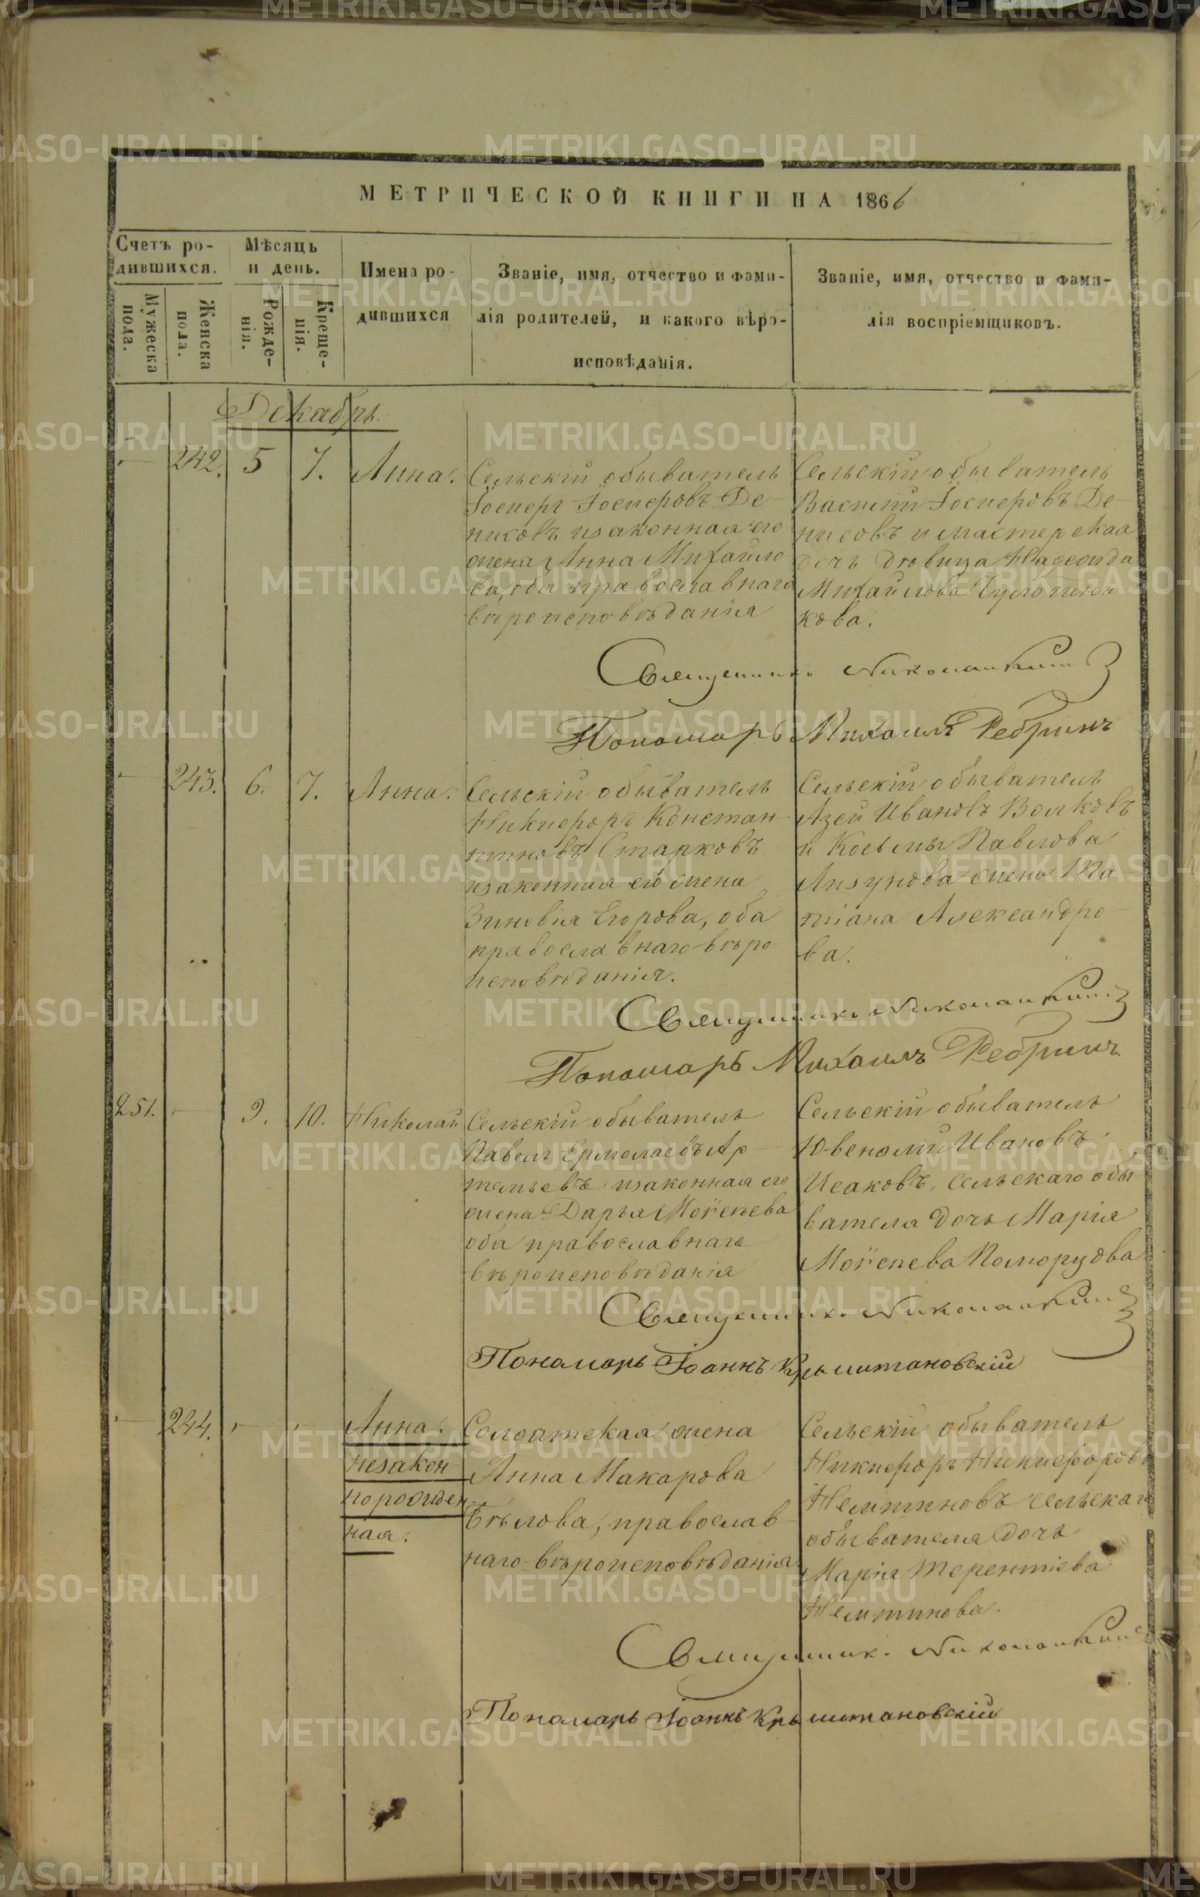 МЕТРИЧЕСКОЙ КНИГИ НА 1866
Счетъ ро-
дившихся.
Мужеска
пола.
Женска
пола.
Мѣсяцъ
и день.
Рожде-
нія.
Креще-
нія.
Имена ро-
дившихся
Званіе, имя, отчество и фами-
лія родителей, и какого вѣро-
исповѣданія.
Званіе, имя, отчество и фами-
лія воспріемщиковъ.
Декабрь
242. 5 7. Анна.
Сельскій обыватель
Іосифъ Іосифовъ Де-
нисовъ изаконная его
жена Анна Михайло
ва, оба православнаго
вѣроисповѣданія
Сельскій обыватель
Василій Іосифовъ Де-
нисовъ и мастерская
дочь дѣвица
Михайлова
кова.
Священникъ
Пономарь Михаилъ Ребринъ
243. 6. 7. Анна.
Сельскій обыватель
Никифоръ Констан-
тиновъ Старковъ
изаконная его жена
Зиновія Егорова, оба
православнаго вѣро
исповѣданія.
Сельскій обыватель
Ивановъ Волковъ
и Козьмы Павлова
жена Та
тіана Александро-
ва.
Священникъ
Пономарь Михаилъ Ребринъ
251. 9. 10. Николай
Сельскій обыватель
Павелъ Ермолаевъ Ар-
темьевъ изаконная его
жена Дарья Моѵсеева
оба православнаго
вѣроисповѣданія
Сельскій обыватель
Ювеналій Ивановъ
Исаковъ, сельскаго обы
вателя дочь Марія
Моѵсеева
Священникъ
Пономарь Іоаннъ
244. Анна.
Незакон
норожден
ная.
Солдатская жена
Анна Макарова
Бѣлова, православ
наго вѣроисповѣданія
Сельскій обыватель
Никифоръ Никифоровъ
сельскаго
обывателя дочь
Марія Терентіева
Священникъ
Пономарь Іоаннъ
METRIKI.GASO-URAL.RU